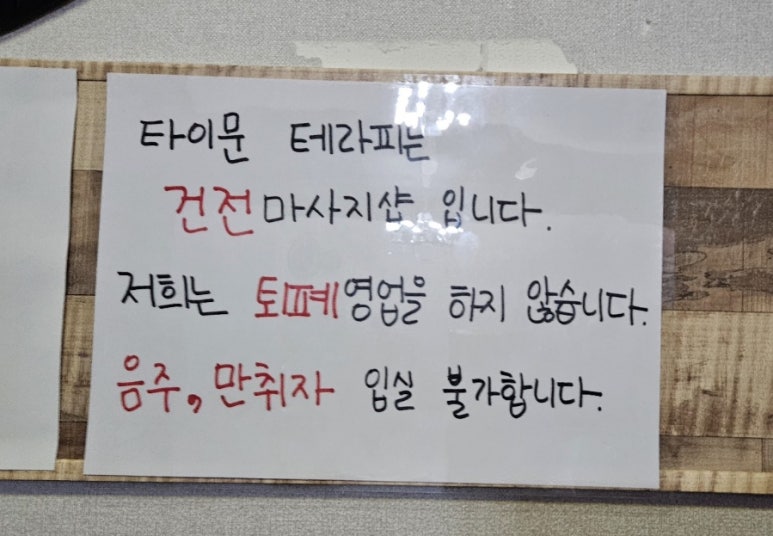 타이문 테라피는
건전마사지샵 입니다.
저희는 토페영업을 하지 않습니다.
음주, 만취자 입실 불가합니다.